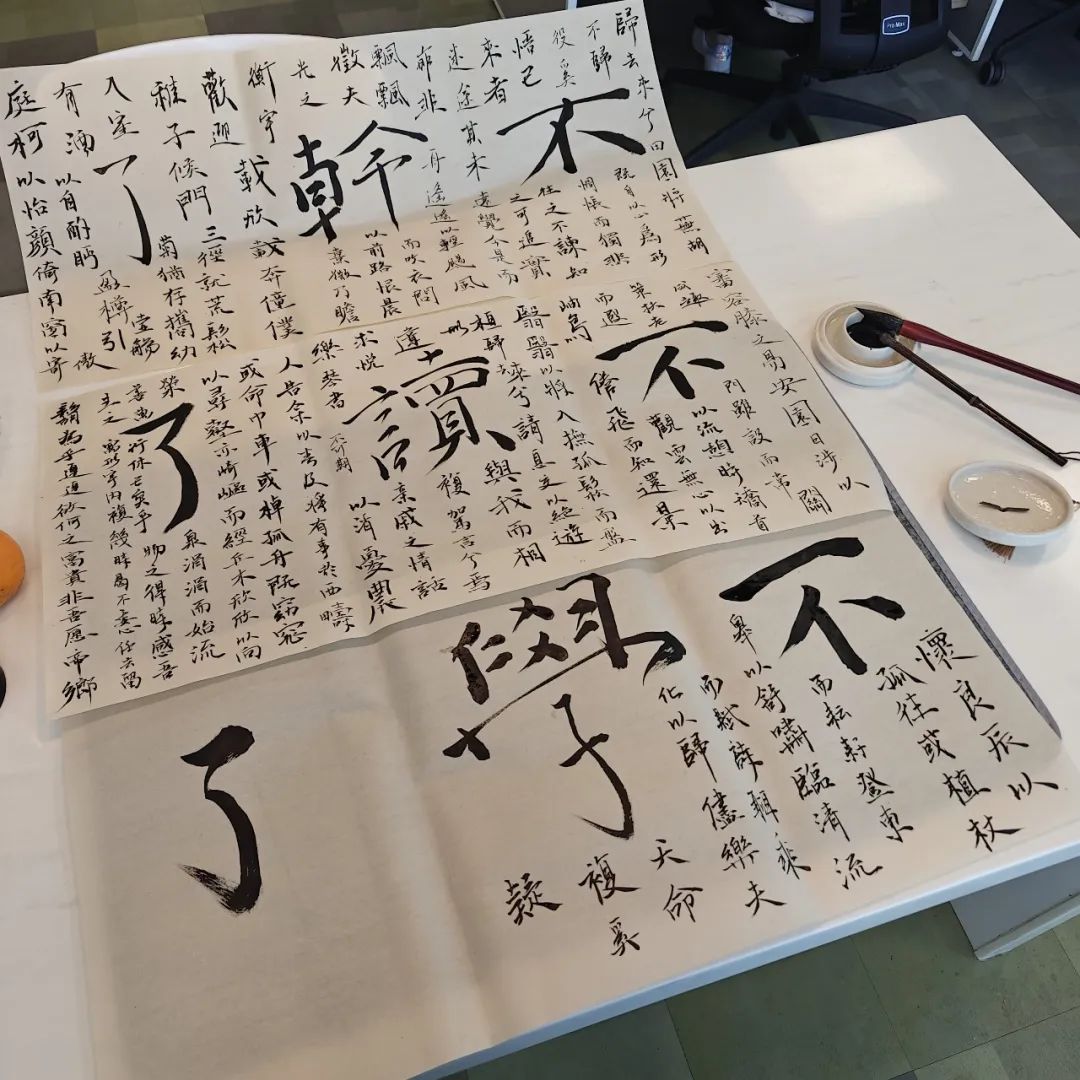 歸去來兮田園將蕪胡
不歸
既自以心為形
役奚
惆悵而獨悲
悟已
往之不諫知
來者
之可追實
迷途其未遠覺今是而
昨非
舟遙遙以輕颺風
飄飄
而吹衣問
徵夫
以前路恨晨
光之
熹微乃瞻
衡宇
載欣載奔僮僕
歡迎
稚子候門三徑就荒鬆
菊猶存攜幼
入室
有酒
盈樽引壺觴
以自酌眄
庭柯以怡顏倚南窗以寄傲
不幹了
審容膝之易安園日涉以
門雖設而常關
策扶老
以流憩時矯首
而遐
觀雲無心以出
岫鳥
倦飛而知還景
翳翳以將入撫孤鬆而盤
桓歸去來兮請息交以絕遊
與我而相
違
複駕言兮焉
求悅
親戚之情話
樂琴書
以消憂農
人告余以春及將有事於西疇
或命巾車或棹孤舟既窈窕
以尋壑亦崎嶇而經丘木欣欣以向
榮
泉涓涓而始流
物之得時感吾
生之
行休已矣乎
寓形宇內複幾時曷不委心任去留
胡為乎遑遑欲何之富貴非吾願帝鄉
不讀了
懷良辰以
孤往或植杖
而耘耔登東
皋以舒嘯臨清流
而賦詩聊乘
化以歸儘樂夫
天命
複奚
疑
不學了
Pro Max